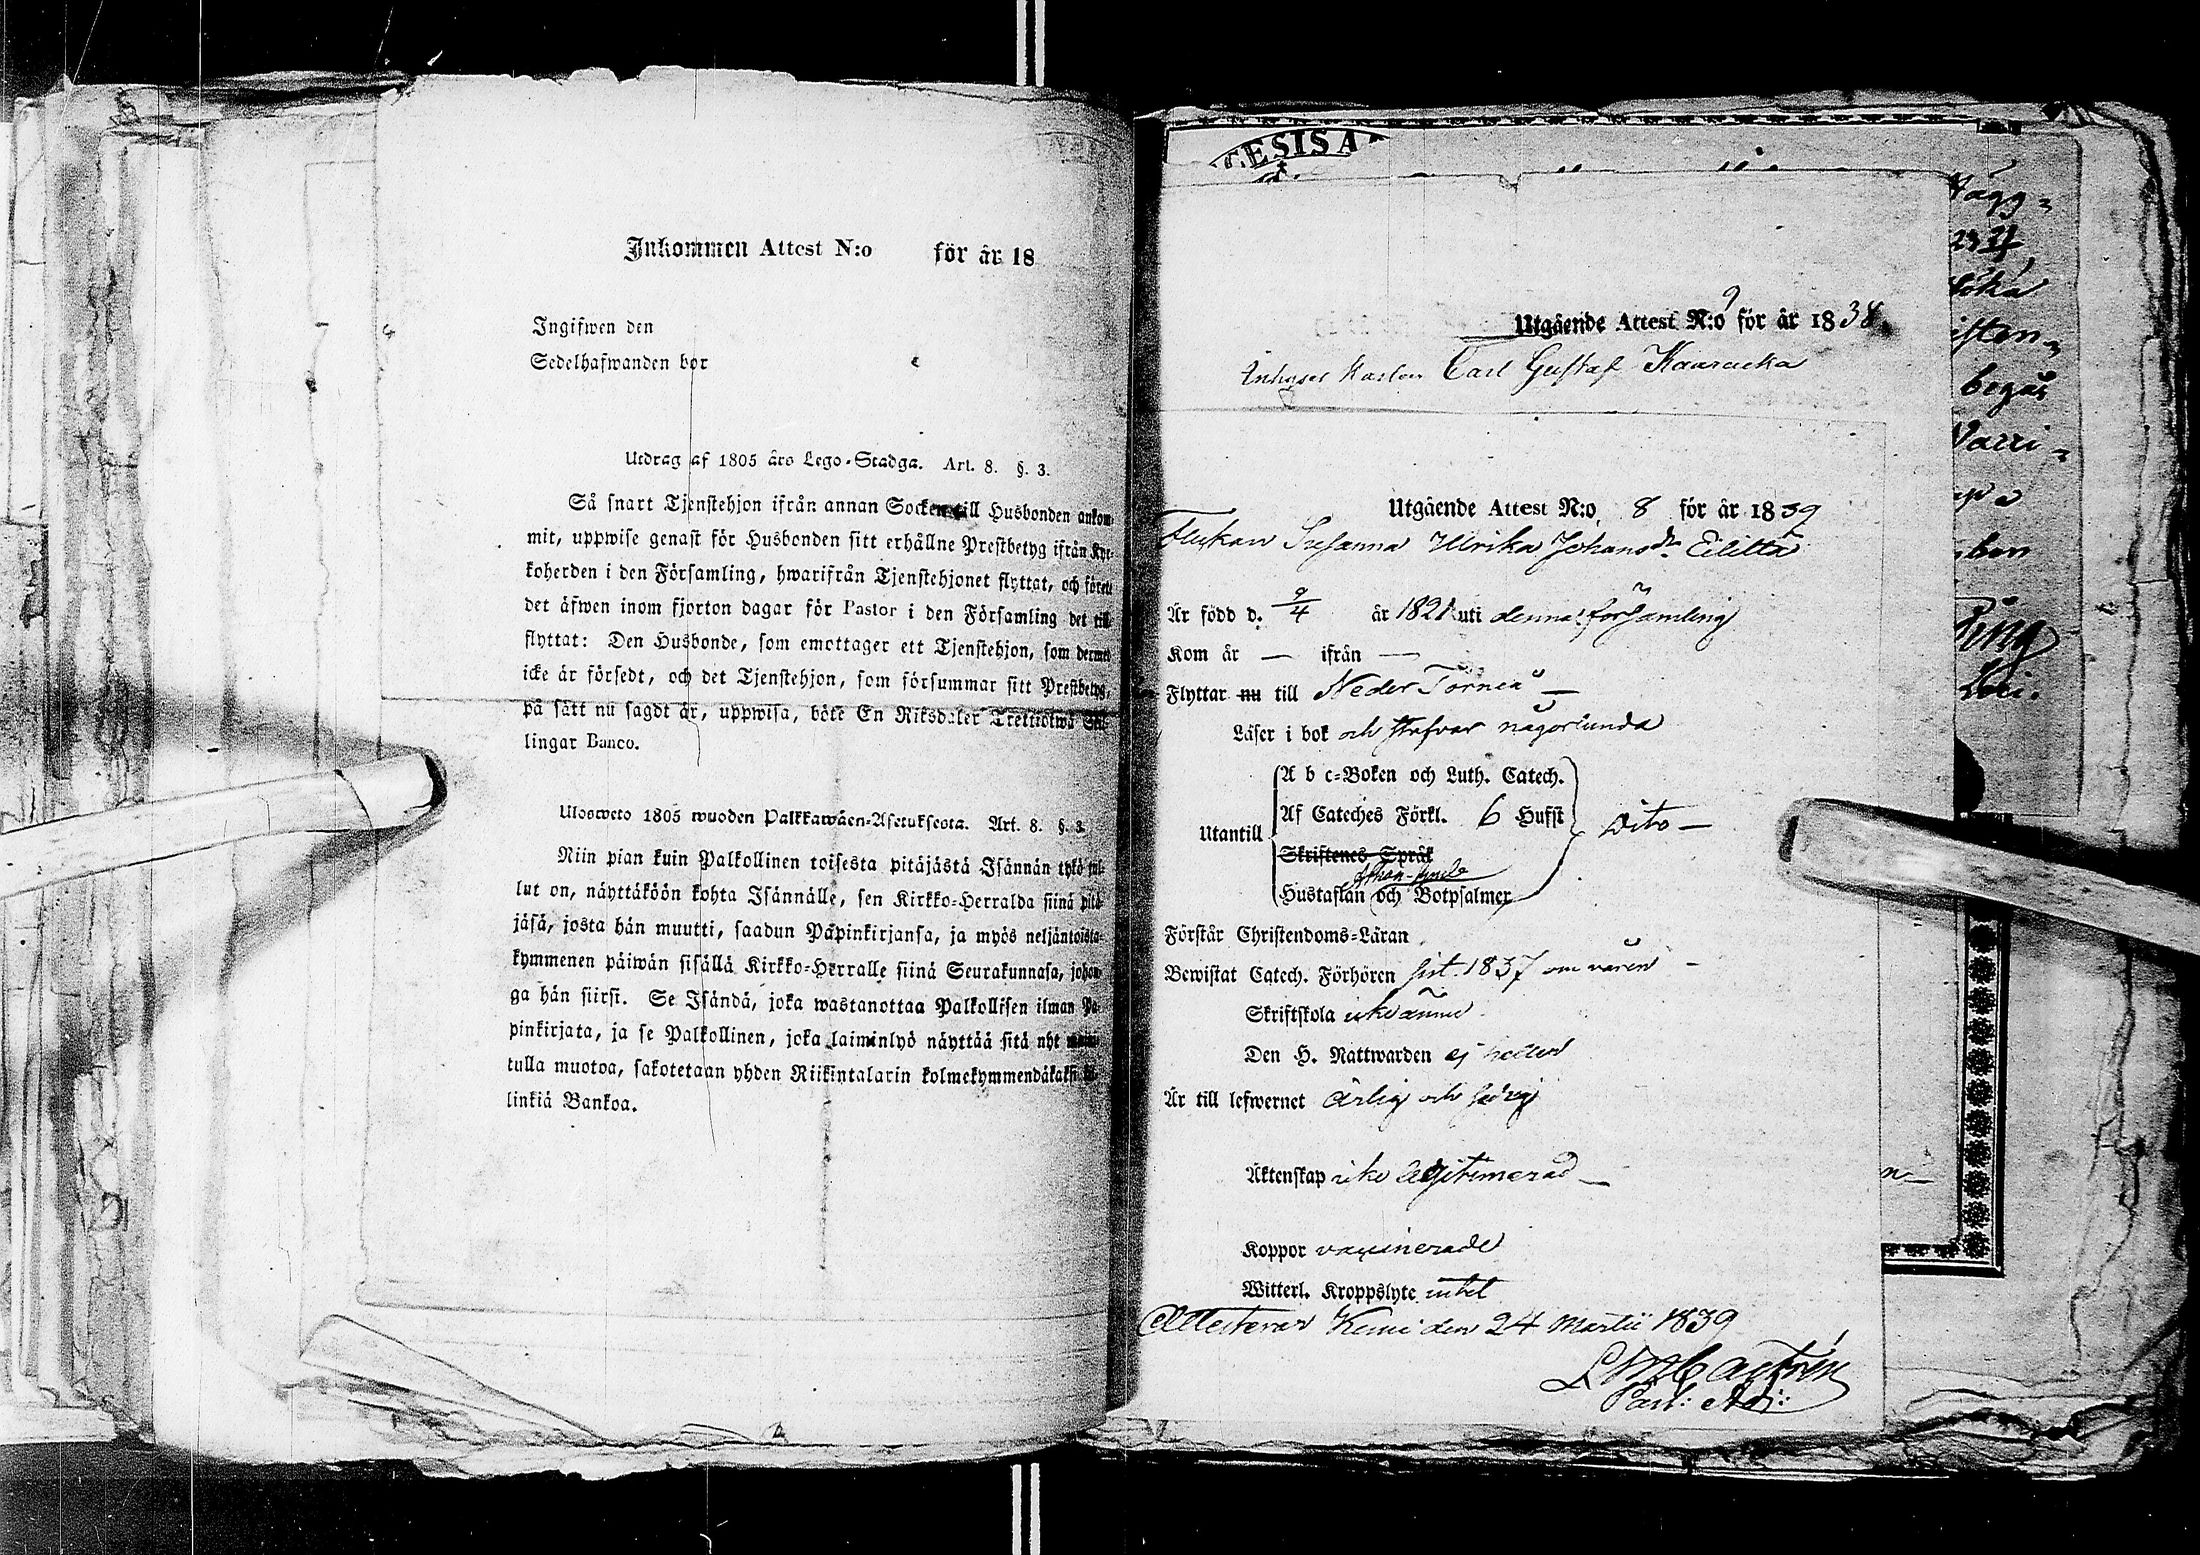 Inkommen Attest N:o för år 18
Ingifwen den
Sedelhafwanden bor
Utdrag af 1805 års Lego-Stadga. Art. 8. §. 3.
Så snart Tjenstehjon ifrån annan Socken till Husbonden ankom-
mit, uppwise genast för Husbonden sitt erhållne Prestbetyg ifrån Kyr-
koherden i den Församling, hwarifrån Tjenstehjonet flyttat, och förete
det äfwen inom fjorton dagar för Pastor i den Församling det till
flyttat: Den Husbonde, som emottager ett Tjenstehjon, som dermed
icke är försedt, och det Tjenstehjon, som försummar sitt Prestbetyg,
på sätt nu sagdt är, uppwisa, böte En Riksdaler Trettiotwå Skil-
lingar Banco.
Ulosweto 1805 wuoden Palkkawäen-Asetuksesta. Art. 8. §. 3.
Niin pian kuin Palkollinen toisesta pitäjästä Isännän tykö tul-
lut on, näyttäköön kohta Isännälle, sen Kirkko-Herralda siinä pitä-
jäsä, josta hän muutti, saadun Papinkirjansa, ja myös neljäntoista-
kymmenen päiwän sisällä Kirkko-Herralle siinä Seurakunnasa, johon-
ga hän siirsi. Se Isändä, joka wastanottaa Palkollisen ilman Pa-
pinkirjata, ja se Palkollinen, joka laiminlyö näyttää sitä nyt
tulla muotoa, sakotetaan yhden Riikintalarin kolmekymmendäkaksi
linkiä Bankoa.
CESISA
Utgående Attest N:o 9 för år 1838
Inhyses Karlen Carl Gustaf Kaaracka
Utgående Attest N:o 8 för år 1839
Flickan Susanna Ulrika Johansdr Eilittä
Är född d. 9/4 år 1821 uti denna församling
Kom år — ifrån —
Flyttar nu till Neder Torneå —
Läser i bok och stafvar någorlunda
A b c-Boken och Luth. Catech.
Af Cateches Förkl. 6 Hufst
Utantill Dito —
Skriftenes Språk
Hustaflan och Botpsalmer
Förstår Christendoms-Läran
Bewistat Catech. Förhören sist 1837 om våren —
Skriftskola icke ännu
Den H. Nattwarden ej heller
Är till lefwernet ärlig och sedig
Äktenskap icke legitimerad —
Koppor vaccinerade
Witterl. Kroppslyte intet
Attesterar Kemi den 24 Martii 1839
Castrén
Past: Adj: